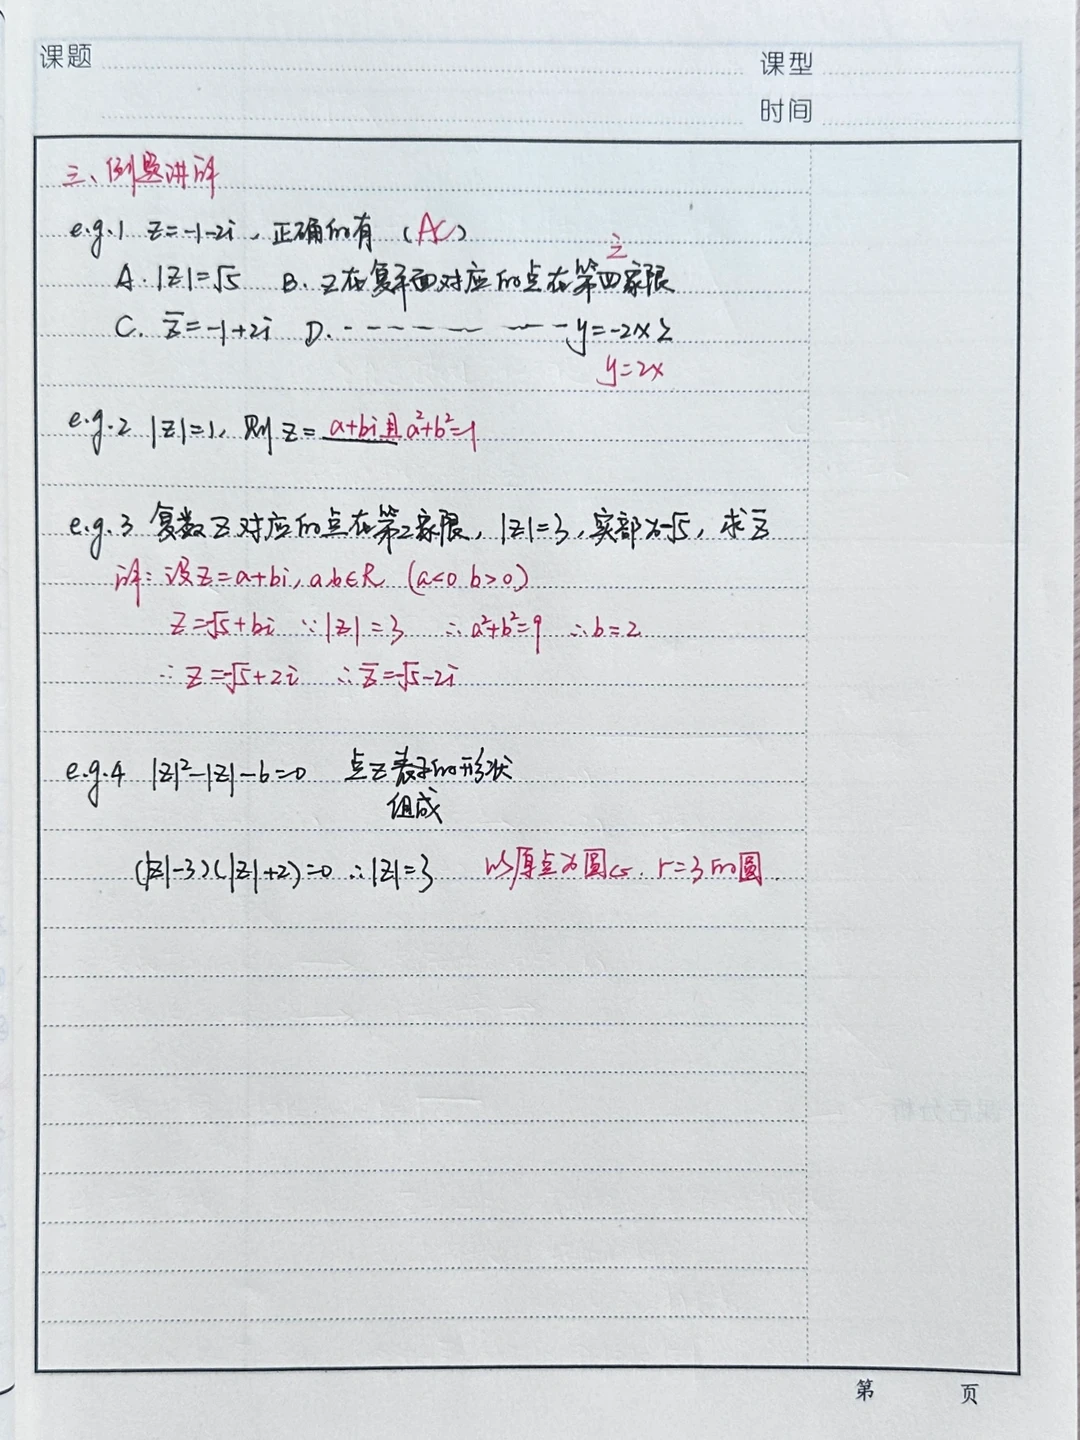 课题
课型
时间
三、例题讲解
e.g.1 z=-1-2i，正确的有（AC）
三
A. |z|=√5 B. z在复平面对应的点在第四象限
C. z̄=-1+2i D. - - - - - - - - - - y=-2x上
y=2x
e.g.2 |z|=1，则z=a+bi且a²+b²=1
e.g.3 复数z对应的点在第二象限，|z|=3，实部为-√5，求z̄
解：设z=a+bi, a,b∈R (a<0 b>0)
z=-√5+bi ∵|z|=3 ∴a²+b²=9 ∴b=2
∴z=-√5+2i ∴z̄=-√5-2i
e.g.4 |z|²-|z|-6=0 点z表示的形状
组成
(|z|-3)(|z|+2)=0 ∴|z|=3 以原点为圆心，r=3的圆.
第 页